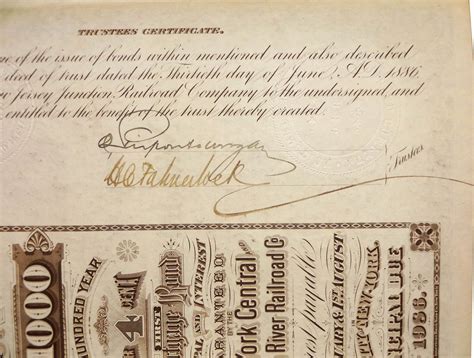 TRUSTEES CERTIFICATE.
ne of the issue of bonds within mentioned and also described
deed of trust dated the Thirtieth day of June, A.D. 1886,
w Jersey Junction Railroad Company to the undersigned, and
entitled to the benefit of the trust thereby created.
J. Pierpont Morgan
H C Fahnestock
Trustees
1000
HUNDRED YEAR
4
FIRST
Mortgage Bond
PAL AND INTEREST
ARANTEED
York Central
River Railroad Co
payable
UARY & 1ST AUGUST
NEW-YORK
CIPAL DUE
1986.